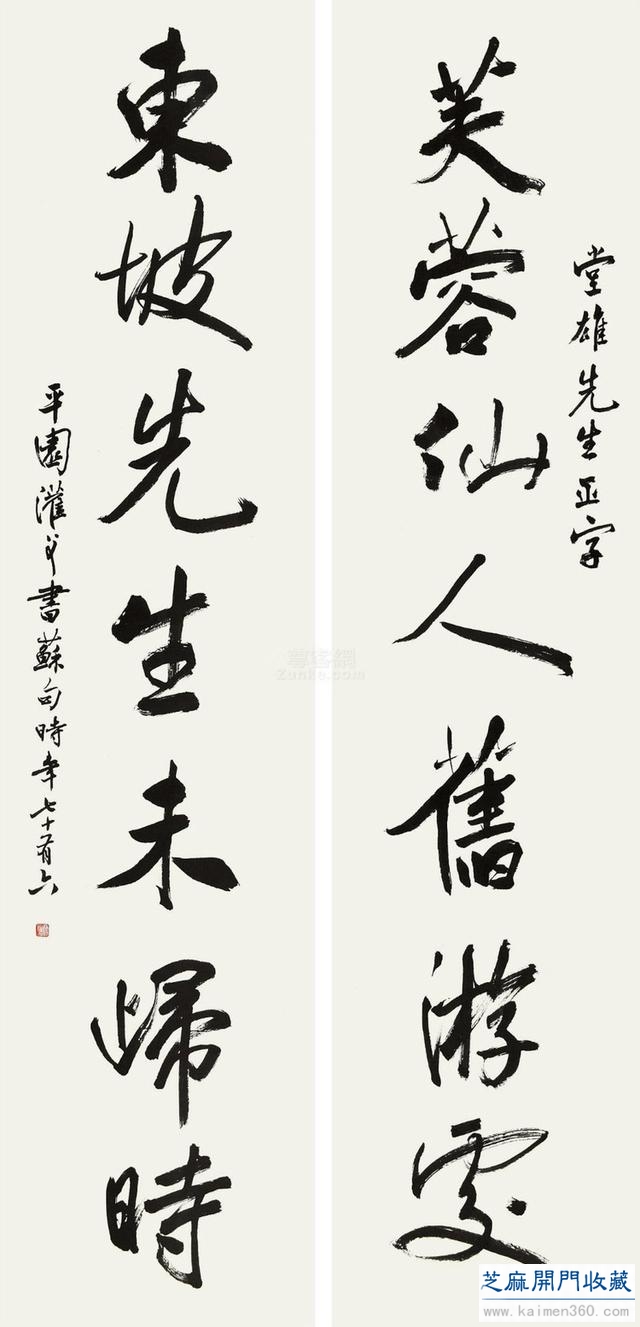 堂雄先生正字
芙蓉仙人舊游處
東坡先生未歸時
平園灌父書蘇句時年七十有六
尊客網
Zunke.com
芝麻開門收藏
www.kaimen360.com